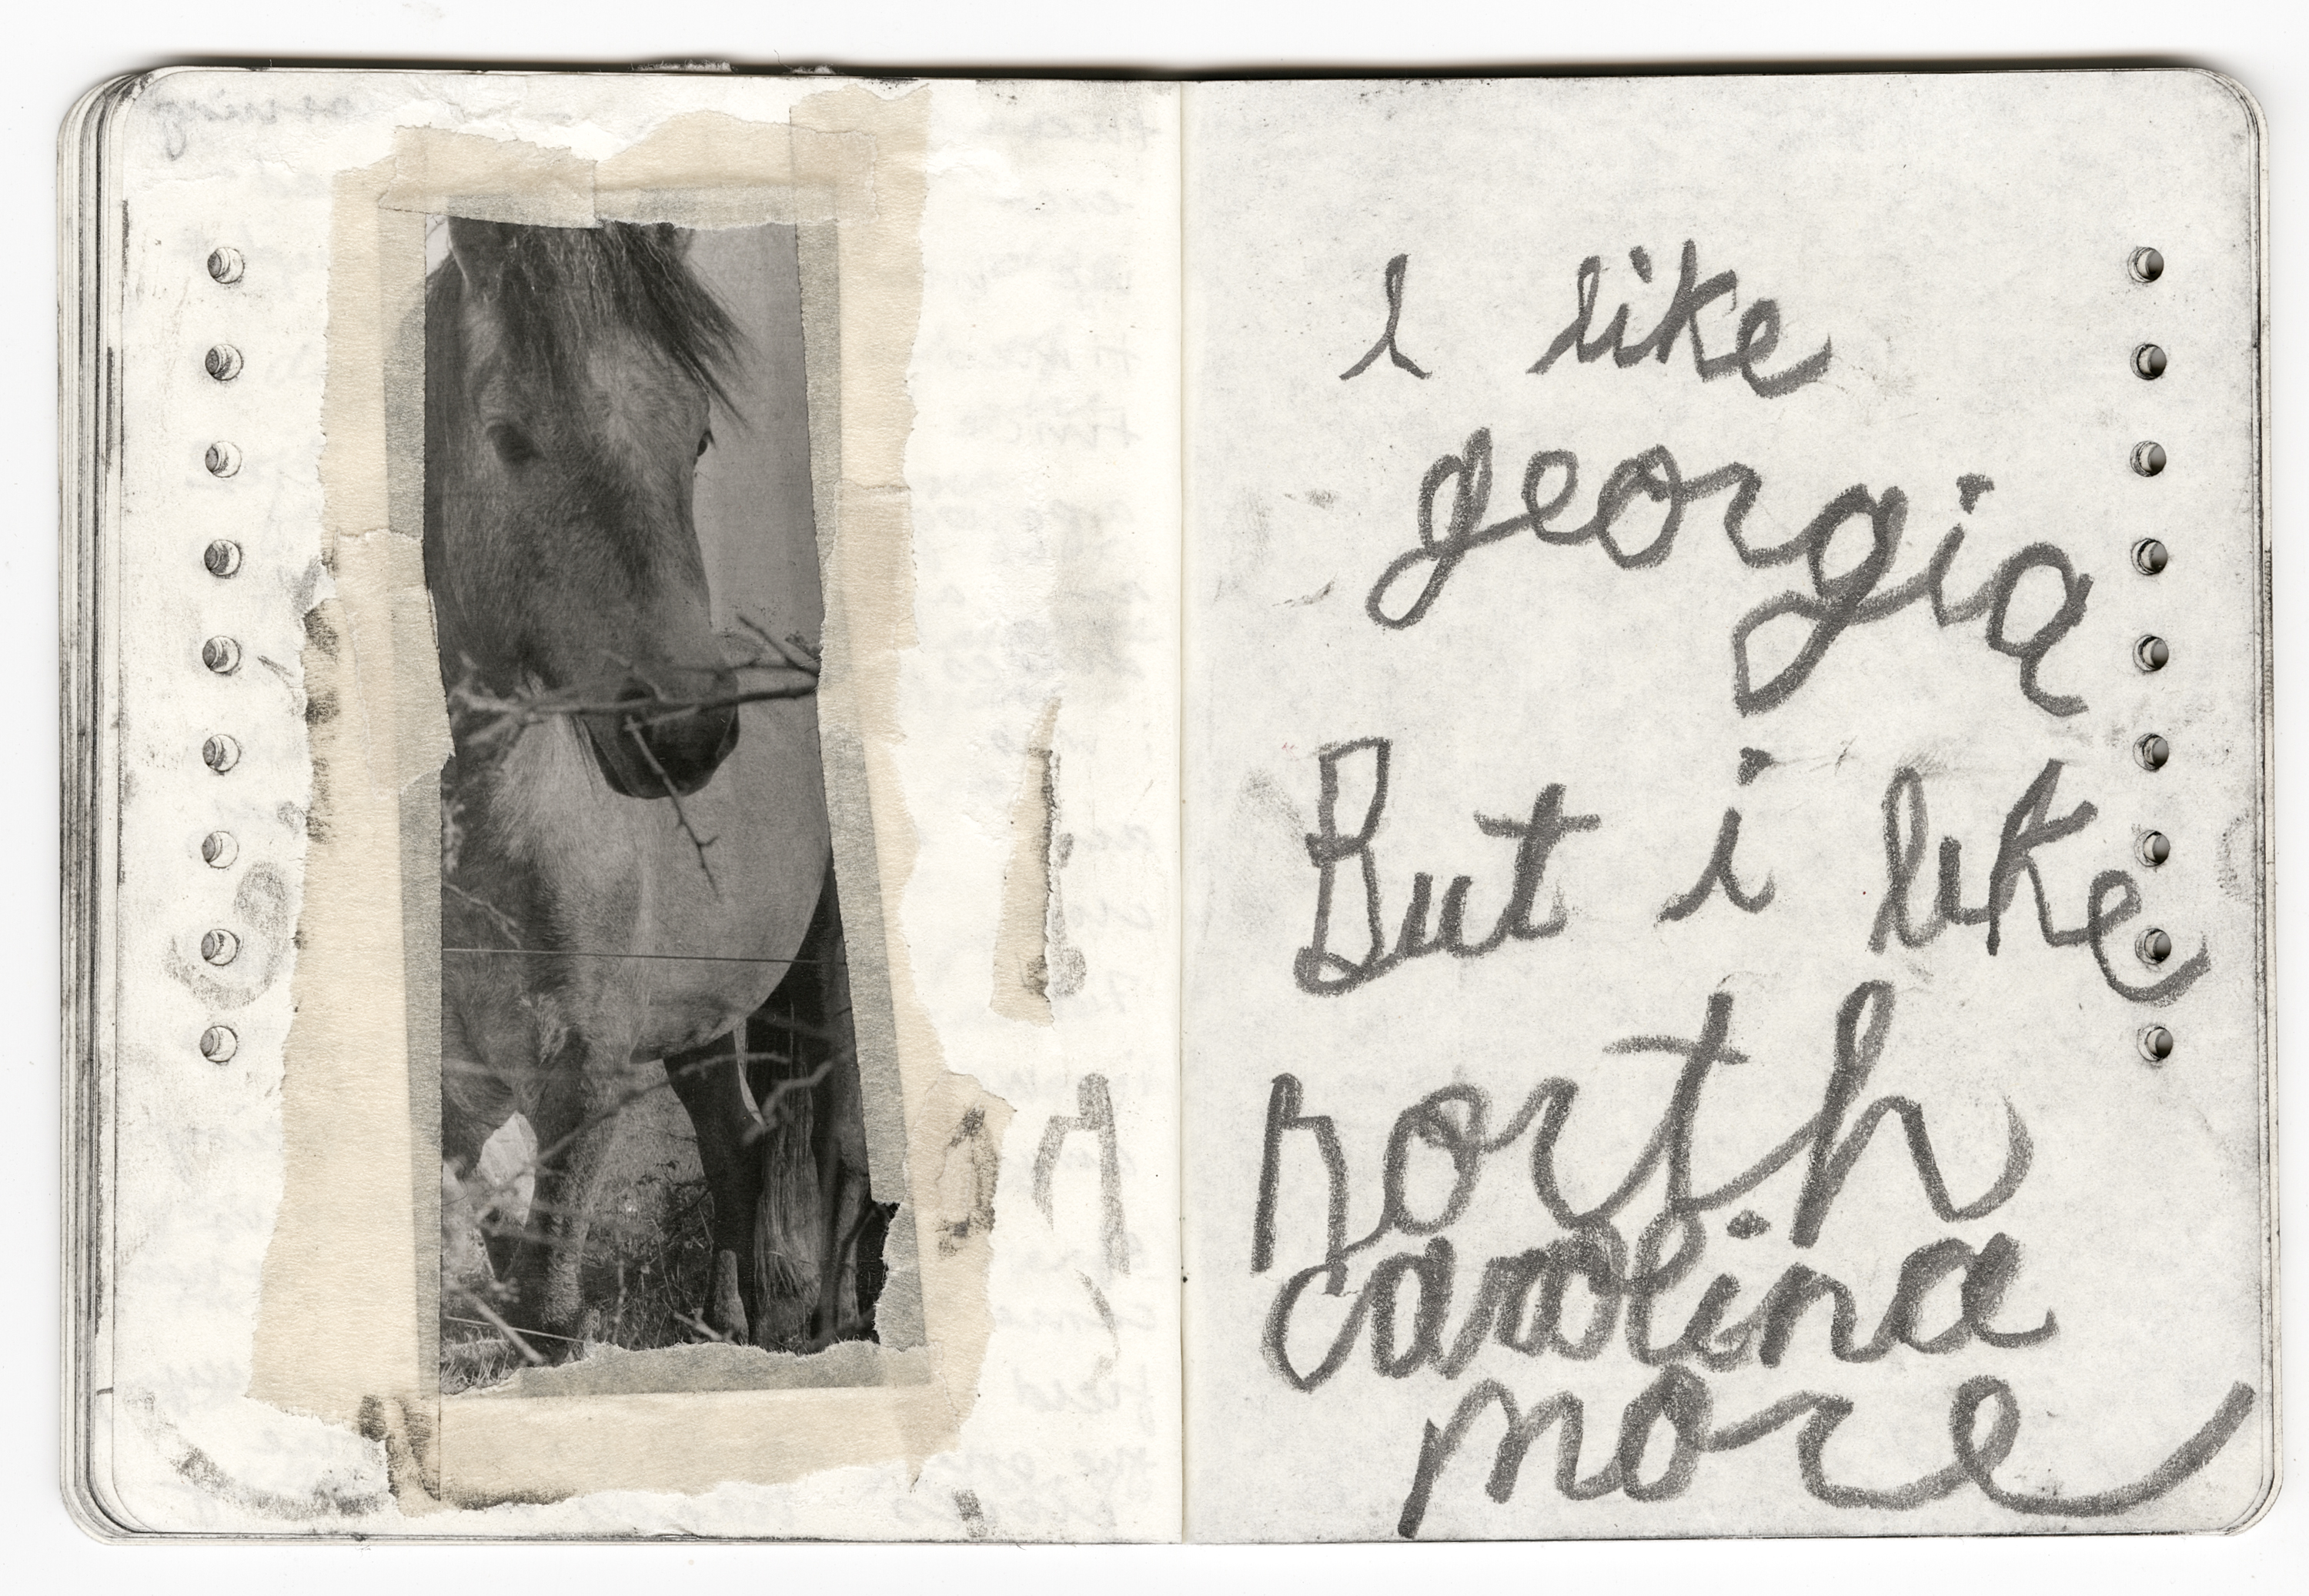 i like
georgia
But i like
north
carolina
more